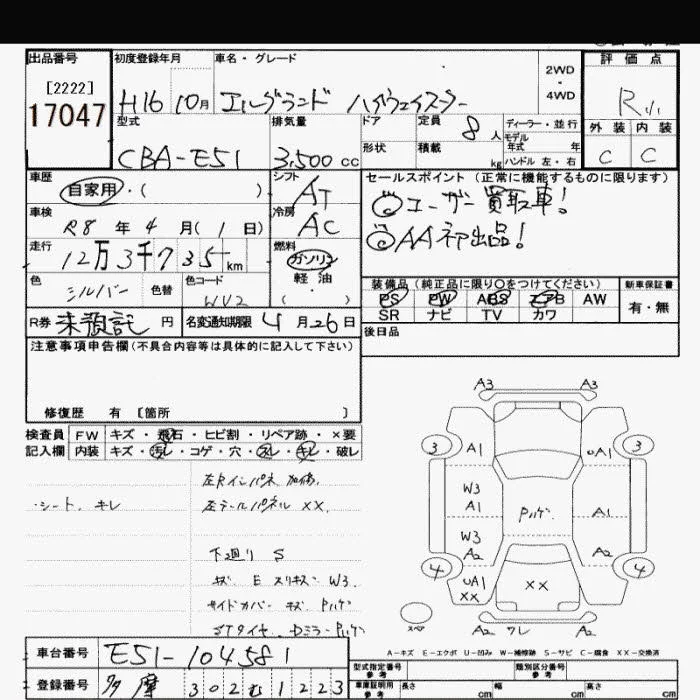 出品番号
[2222]
17047
初度登録年月
H16 10月
車名・グレード
エルグランド ハイウェイスター
2WD
・
4WD
評価点
R
外装 内装
C C
型式
CBA-E51
排気量
3,500 cc
ドア
形状
定員
8 人
積載
kg
ディーラー・並行
モデル
年式 年
ハンドル 左・右
車歴
自家用・( )
車検
R8 年 4 月 (1 日)
走行
12万3千735 km
色
シルバー
色替
色コード
WV2
シフト
AT
冷房
AC
燃料
ガソリン
軽油
( ・ )
セールスポイント(正常に機能するものに限ります)
◎ユーザー買取車!
◎AA初出品!
装備品(純正品に限り○をつけてください)
PS PW ABS エアB AW
SR ナビ TV カワ
新車保証書
有・無
R券 未預託 円
名変通知期限 4月26日
後日品
注意事項申告欄(不具合内容等は具体的に記入して下さい)
修復歴 有 [箇所 ]
検査員 FW キズ・飛石・ヒビ割・リペア跡・×要
記入欄 内装 キズ・汚レ・コゲ・穴・スレ・キレ・破レ
・シート、キレ
左Rインパネ 加修。
左テールパネル XX。
下廻り S
キズ E スリキズ W3
サイドカバー キズ Pハゲ
STタイヤ Dミラー Pハゲ
A3 A3
3 A1 UA1 3
W3
A1 Pハゲ A1
W3
A2 A2
4 UA1 XX 4
XX
スペア
A2 クレ A2
A-キズ E-エクボ U-凹み W-補修跡 S-サビ C-腐食 XX-交換済
車台番号 E51-104581
登録番号 多摩 302 む 1223
型式指定番号
参考
類別区分番号
参考
車庫証明用
参考
長さ cm
幅 cm
高さ cm